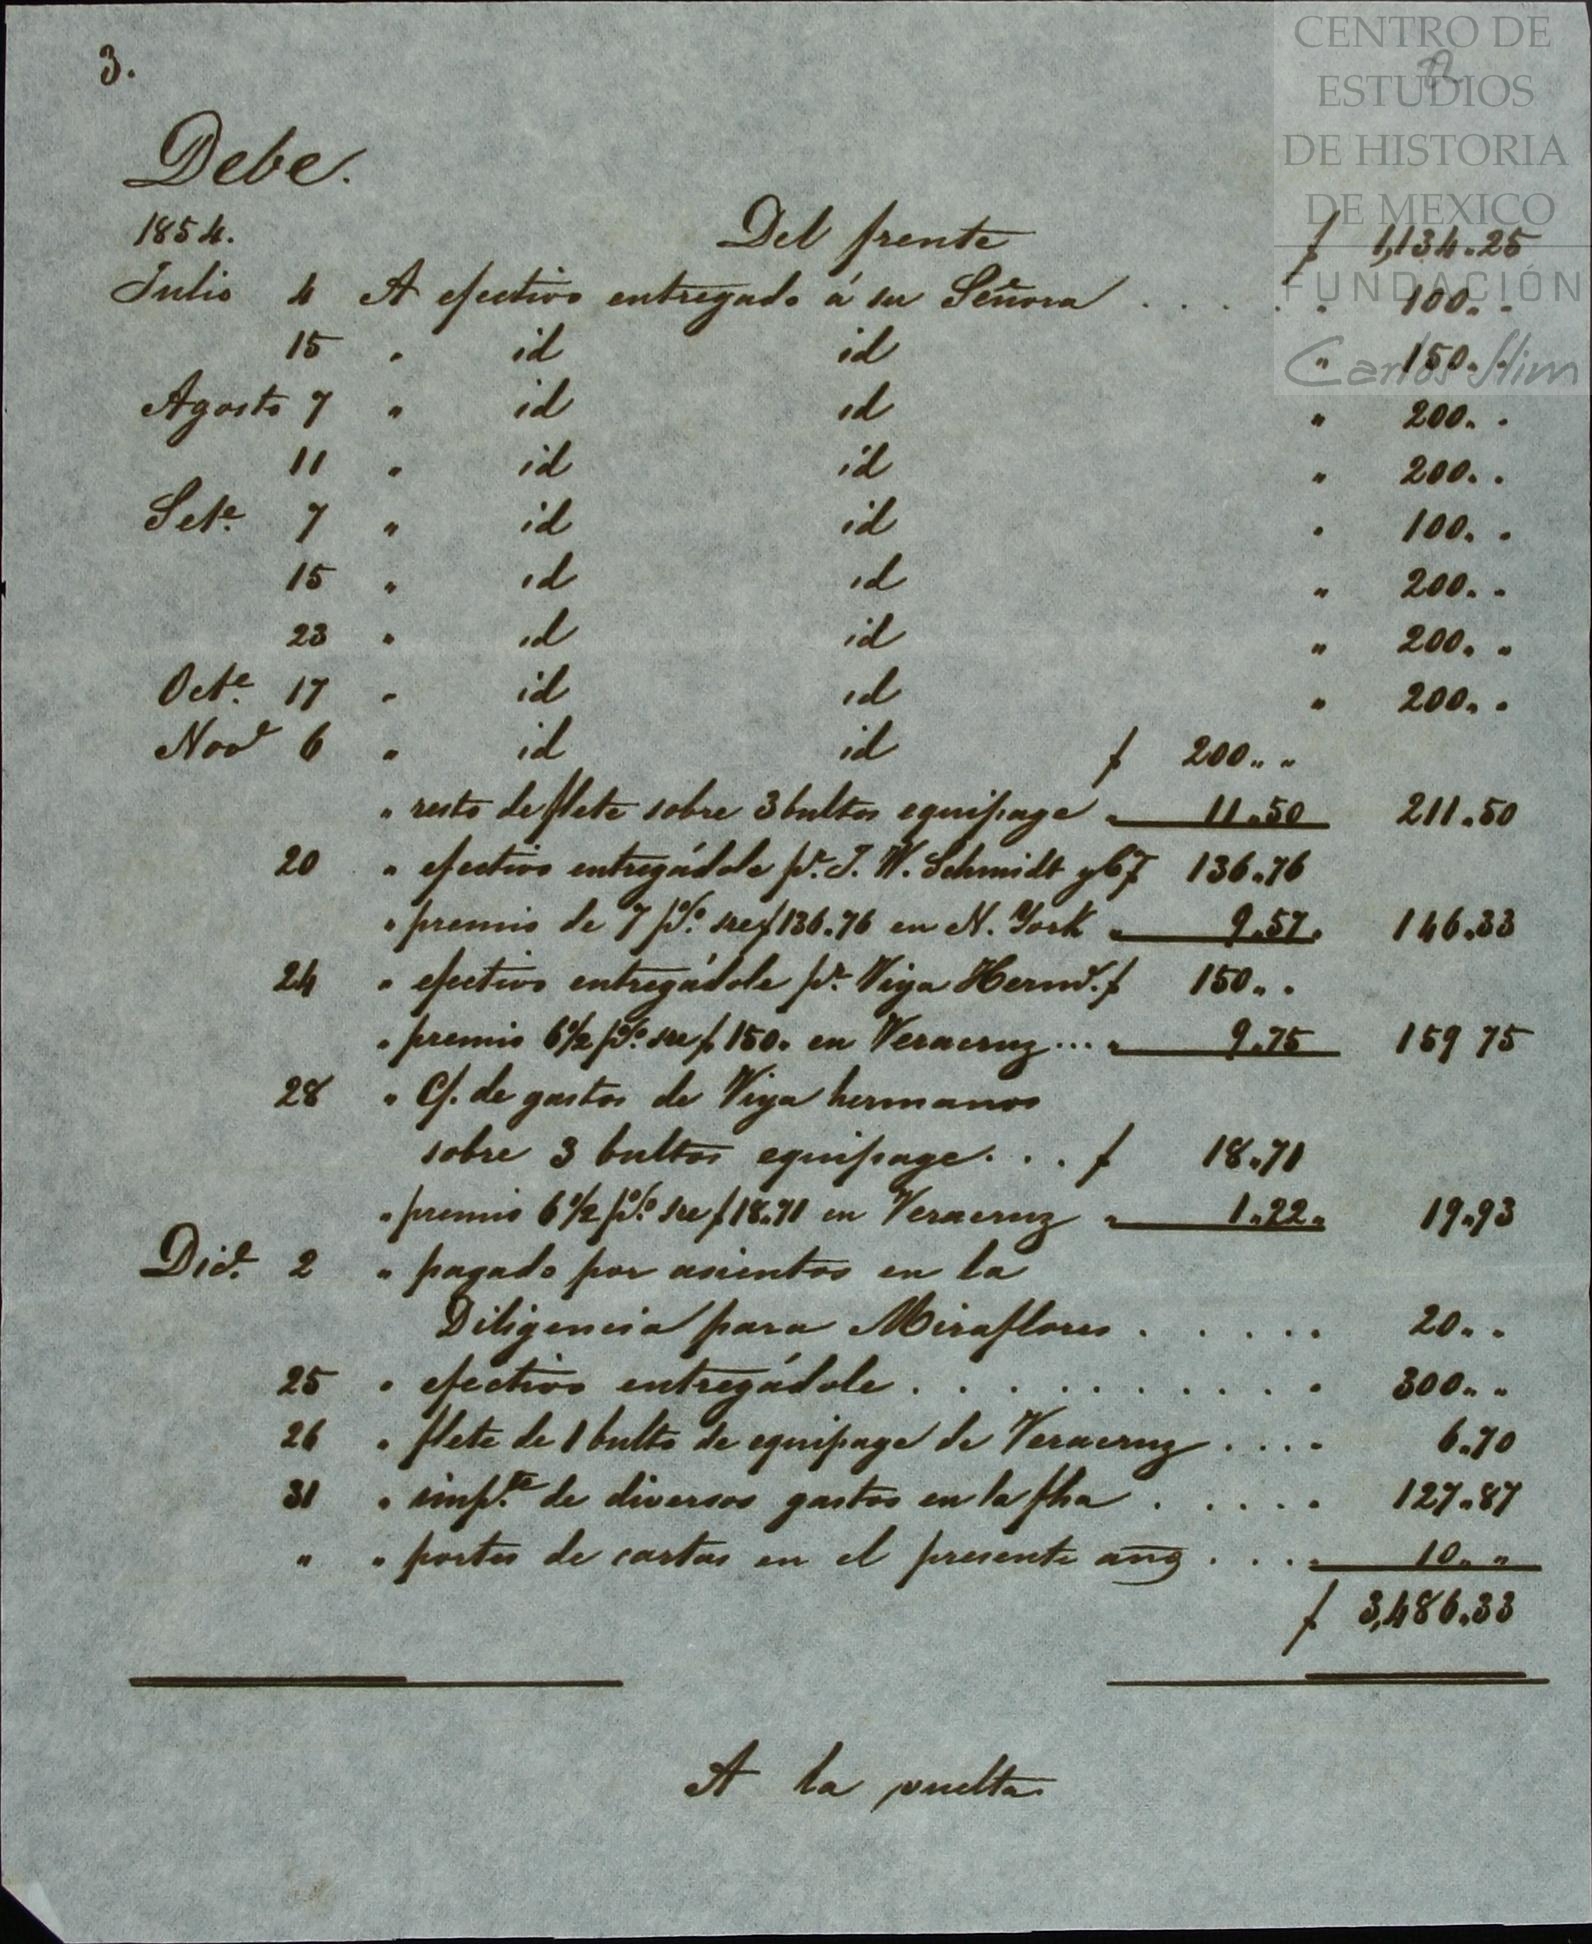 3.
CENTRO DE
ESTUDIOS
DE HISTORIA
DE MEXICO
FUNDACIÓN
Carlos Slim
Debe.
1854. Del frente $ 1,134.25
Julio 4 A efectivo entregado á su Señora . . . . . 100. .
15 " id id " 150. .
Agosto 7 " id id " 200. .
11 " id id " 200. .
Sete. 7 " id id " 100. .
15 " id id " 200. .
23 " id id " 200. .
Octe. 17 " id id " 200. .
Nove 6 " id id $ 200. .
" resto de flete sobre 3 bultos equipage " 11.50 211.50
20 " efectivo entregádole pr. J. W. Schmidt y Ca $ 136.76
" premio de 7 p%. sre $136.76 en N. York " 9.57. 146.33
24 " efectivo entregádole pr. Viya Hermos. $ 150. .
" premio 6 1/2 p%. sre $150. en Veracruz ... " 9.75 159 75
28 " C/. de gastos de Viya hermanos
sobre 3 bultos equipage. . . $ 18.71
" premio 6 1/2 p%. sre $18.71 en Veracruz " 1.22. 19.93
Dice. 2 " pagado por asientos en la
Diligencia para Miraflores . . . . . 20. .
25 " efectivo entregádole . . . . . . . . . . 300. .
26 " flete de 1 bulto de equipage de Veracruz . . . . 6.70
31 " impte. de diversos gastos en la fha . . . . . 127.87
" " portes de cartas en el presente año . . . . 10. .
$ 3,486.33
A la vuelta